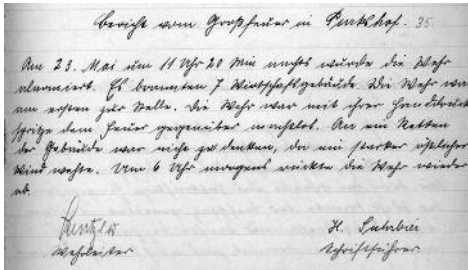 Bericht vom Großfeuer in Purkshof. 35
Am 23. Mai um 11 Uhr 20 Min nachts wurde die Wehr
alarmiert. Es brannten 7 Wirtschaftsgebäude. Die Wehr war
am ersten zur Stelle. Die Wehr war mit ihrer Handdruck
spritze dem Feuer gegenüber machtlos. An ein Retten
der Gebäude war nicht zu denken, da ein starker östlicher
Wind wehte. Um 6 Uhr morgens rückte die Wehr wieder
ab.
H.
Wehrleiter Schriftführer